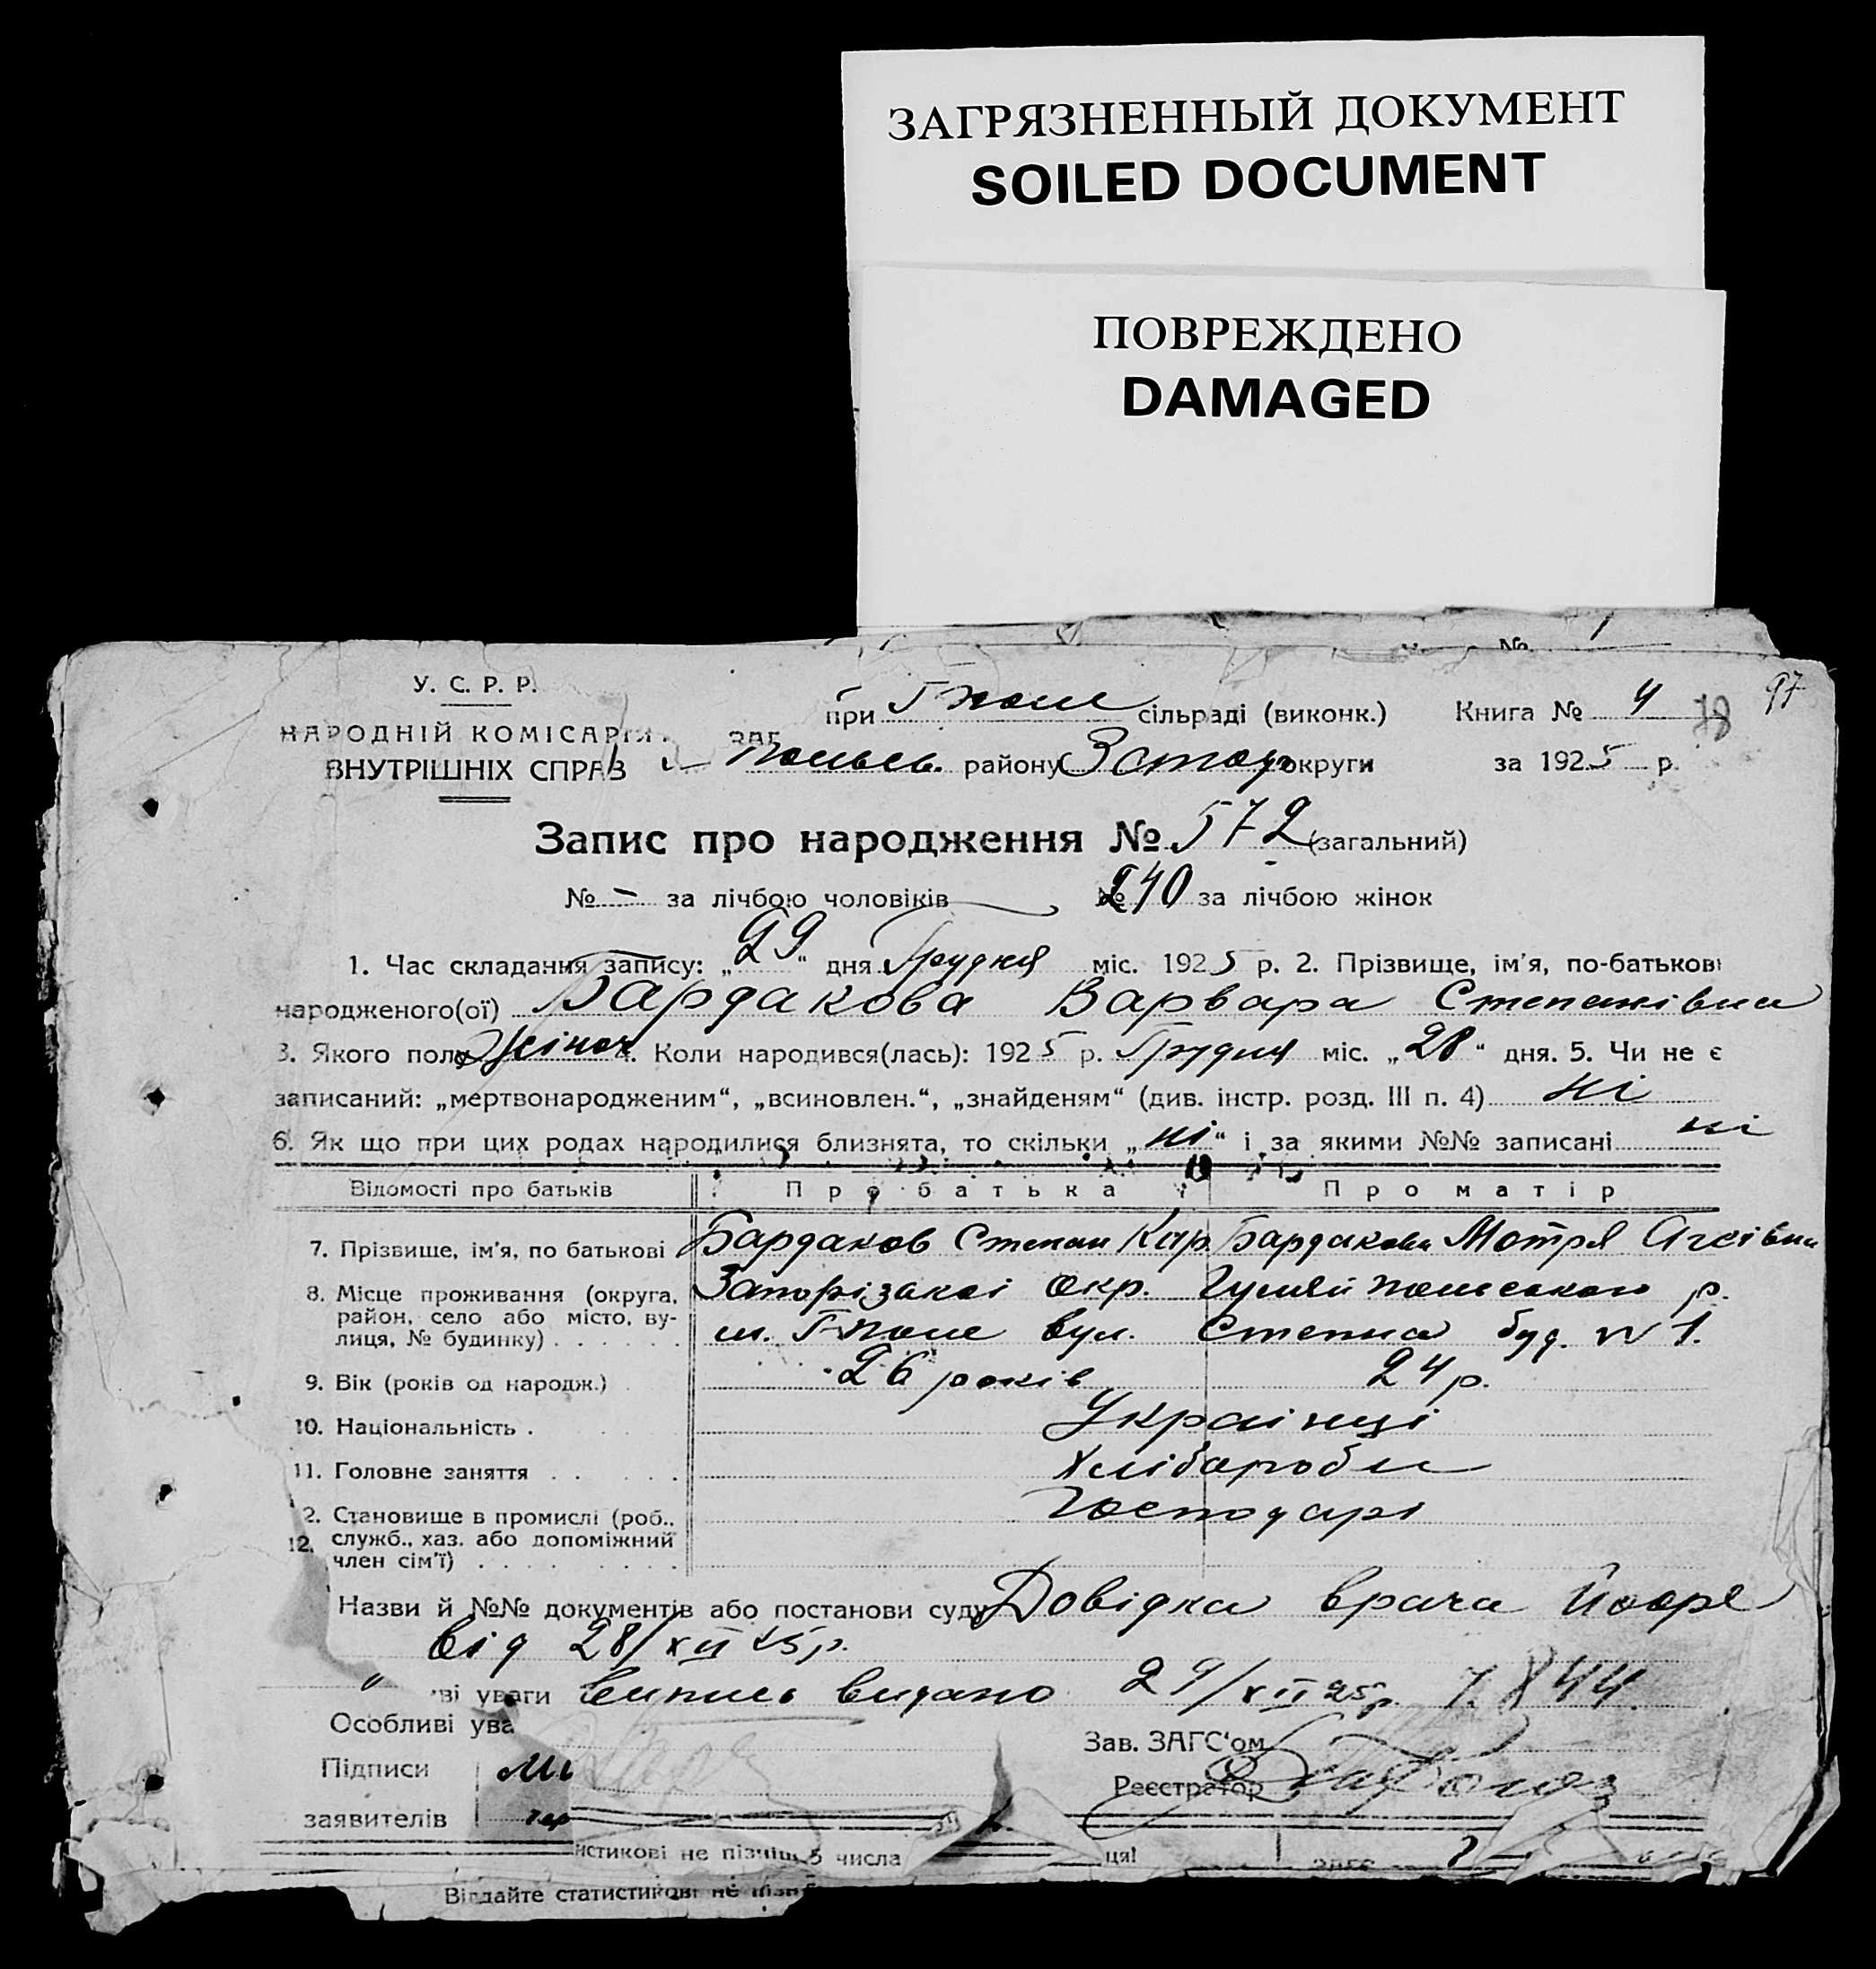 ЗАГРЯЗНЕННЫЙ ДОКУМЕНТ
SOILED DOCUMENT
ПОВРЕЖДЕНО
DAMAGED
№ 1
У. С. Р. Р.
при Гполе сільраді (виконк.) Книга № 4 97
НАРОДНІЙ КОМІСАРІЯ
ВНУТРІШНІХ СПРАВ
району округи за 1925 р.
Запис про народження № 572 (загальний)
№ - за лічбою чоловіків № 240 за лічбою жінок
1. Час складання запису: „29“ дня Грудня міс. 1925 р. 2. Прізвище, ім’я, по-батькові
народженого(ої) Бардакова Варвара Степанівна
3. Якого полу жіноч 4. Коли народився(лась): 1925 р. Грудня міс. „28“ дня. 5. Чи не є
записаний: „мертвонародженим“, „всиновлен.“, „знайденям“ (див. інстр. розд. III п. 4) ні
6. Як що при цих родах народилися близнята, то скільки „ні“ і за якими №№ записані ні
Відомості про батьків Про батька Про матір
7. Прізвище, ім’я, по батькові Бардаков Степан Кир Бардакова Мотря
8. Місце проживання (округа, район, село або місто, вулиця, № будинку) Запорізької окр. Гуляйпольського р.
м. Гполе вул. Степна буд. № 1.
9. Вік (років од народж.) 26 років 24 р.
10. Національність Українці
11. Головне заняття Хлібороби
12. Становище в промислі (роб., служб., хаз. або допоміжний член сім’ї) Господарі
Назви й №№ документів або постанови суду Довідка врача
від 28/XII 25 р.
ві уваги Випись видано 29/XII 25 р. 844
Особливі ува
Зав. ЗАГС‘ом
Підписи
Реєстратор
заявителів
истикові не пізніш 5 числа
ця!
Віддайте статистикові не пізн